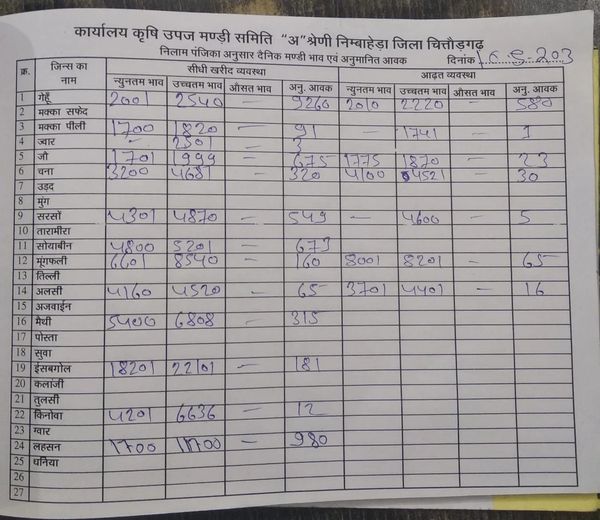 कार्यालय कृषि उपज मण्डी समिति "अ" श्रेणी निम्बाहेड़ा जिला चित्तौड़गढ़
निलाम पंजिका अनुसार दैनिक मण्डी भाव एवं अनुमानित आवक दिनांक
क्र. जिन्स का नाम सीधी खरीद व्यवस्था आढ़त व्यवस्था
न्युनतम भाव उच्चतम भाव औसत भाव अनु. आवक न्युनतम भाव उच्चतम भाव औसत भाव अनु. आवक
1 गेहूँ 2001 2540 — 9260 2010 2220 — 580
2 मक्का सफेद
3 मक्का पीली 1700 1820 — 91 — 1741 — 1
4 ज्वार — 2501 — 3
5 जौ 1701 1999 — 675 1775 1870 — 23
6 चना 3200 4681 — 320 4100 4521 — 30
7 उड़द
8 मुंग
9 सरसों 4301 4870 — 549 — 4600 — 5
10 तारामीरा
11 सोयाबीन 4800 5201 — 673
12 मूंगफली 6601 8540 — 160 8001 8201 — 65
13 तिल्ली
14 अलसी 4160 4520 — 65 3701 4401 — 16
15 अजवाईन
16 मैथी 5400 6808 — 315
17 पोस्ता
18 सुवा
19 ईसबगोल 18201 22101 — 181
20 कलांजी
21 तुलसी
22 किनोवा 4201 6636 — 12
23 ग्वार
24 लहसन 1700 11700 — 980
25 धनिया
26
27